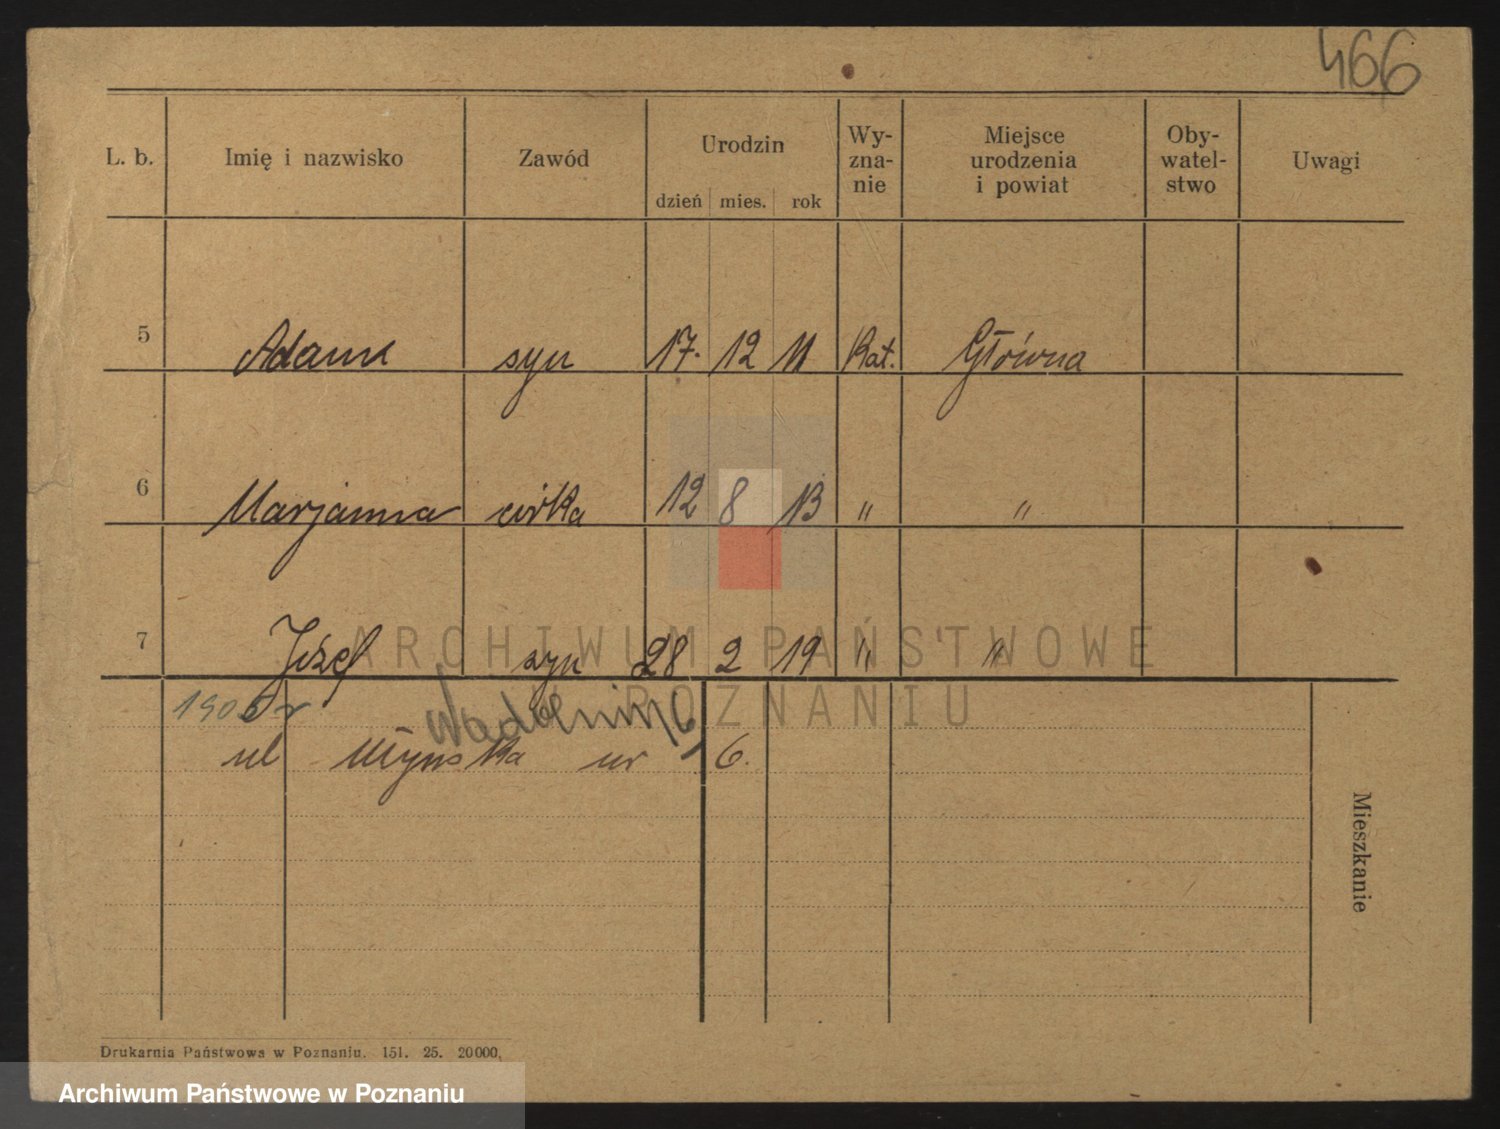 466
L. b. Imię i nazwisko Zawód Urodzin dzień mies. rok Wy-zna-nie Miejsce urodzenia i powiat Oby-watel-stwo Uwagi
5 Adam syn 17. 12 11 Kat. Główna
6 Marjanna córka 12 8 13 " "
7 Józef syn 28 2 19 " "
ARCHIWUM PAŃSTWOWE
W POZNANIU
1906 r
ul Młyńska nr 6.
Mieszkanie
Drukarnia Państwowa w Poznaniu. 151. 25. 20000.
Archiwum Państwowe w Poznaniu